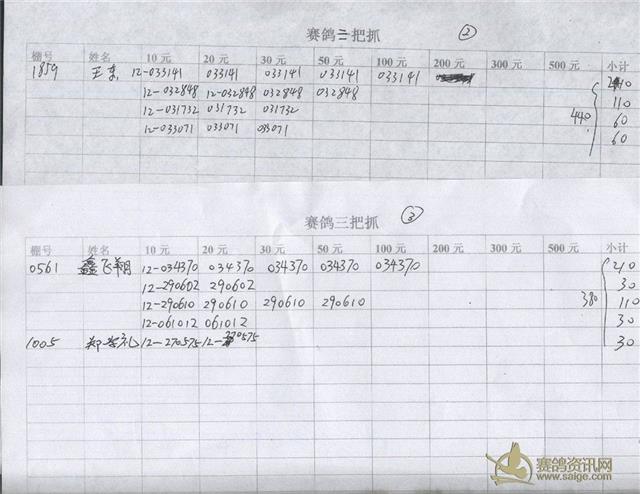 赛鸽三把抓 ②
棚号 姓名 10元 20元 30元 50元 100元 200元 300元 500元 小计
1859 王 12-033141 033141 033141 033141 033141 210
12-032848 12-032848 032848 032848 110
12-031732 031732 031732 440 60
12-033071 033071 033071 60
赛鸽三把抓 ③
棚号 姓名 10元 20元 30元 50元 100元 200元 300元 500元 小计
0561 鑫飞翔 12-034370 034370 034370 034370 034370 210
12-290602 290602 30
12-290610 290610 290610 290610 380 110
12-061012 061012 30
1005 郑 礼 12-270575 12-270575 30
赛鸽资讯网
www.saige.com